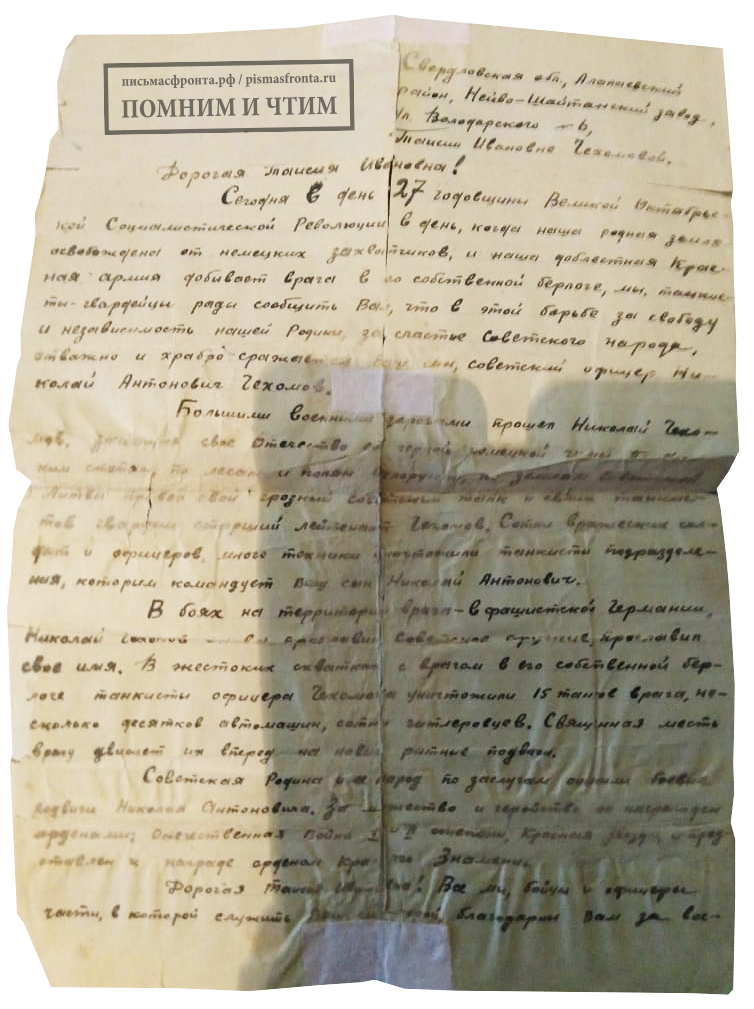 письмасфронта.рф / pismasfronta.ru
ПОМНИМ И ЧТИМ
Свердловская обл., Алапаевский
район, Нейво-Шайтанский завод,
ул. Володарского 6,
Таисии Ивановне Чехомовой.
Дорогая Таисия Ивановна!
Сегодня в день 27 годовщины Великой Октябрьс-
кой Социалистической Революции в день, когда наша родная земля
освобождена от немецких захватчиков, и наша доблестная Крас-
ная армия добивает врага в его собственной берлоге, мы, танкис-
ты-гвардейцы рады сообщить Вам, что в этой борьбе за свободу
и независимость нашей Родины, за счастье Советского народа,
отважно и храбро сражается Ваш сын, советский офицер Ни-
колай Антонович Чехомов.
Большими военными дорогами прошел Николай Чехо-
мов, защищая свое Отечество от
по лесам и полям Белоруссии, по землям Советской
Литвы провел свой грозный советский танк и своих танкис-
тов гвардии старший лейтенант Чехомов. Сотни вражеских сол-
дат и офицеров, много техники уничтожили танкисты подразделе-
ния, которым командует Ваш сын Николай Антонович.
В боях на территории врага - в фашистской Германии,
Николай Чехомов прославил советское оружие, прославил
свое имя. В жестоких схватках с врагом в его собственной бер-
логе танкисты офицера Чехомова уничтожили 15 танков врага, не-
сколько десятков автомашин, сотни гитлеровцев. Священная месть
врагу двигает их вперед на новые ратные подвиги.
Советская Родина и народ по заслугам оценили боевые
подвиги Николая Антоновича. За мужество и геройство он награжден
орденами: Отечественная Война I и II степени, Красная Звезда и пред-
ставлен к награде орденом Красного Знамени.
Дорогая Таисия Ивановна! Вам мы, бойцы и офицеры
части, в которой служит Ваш сын, благодарны Вам за вос-